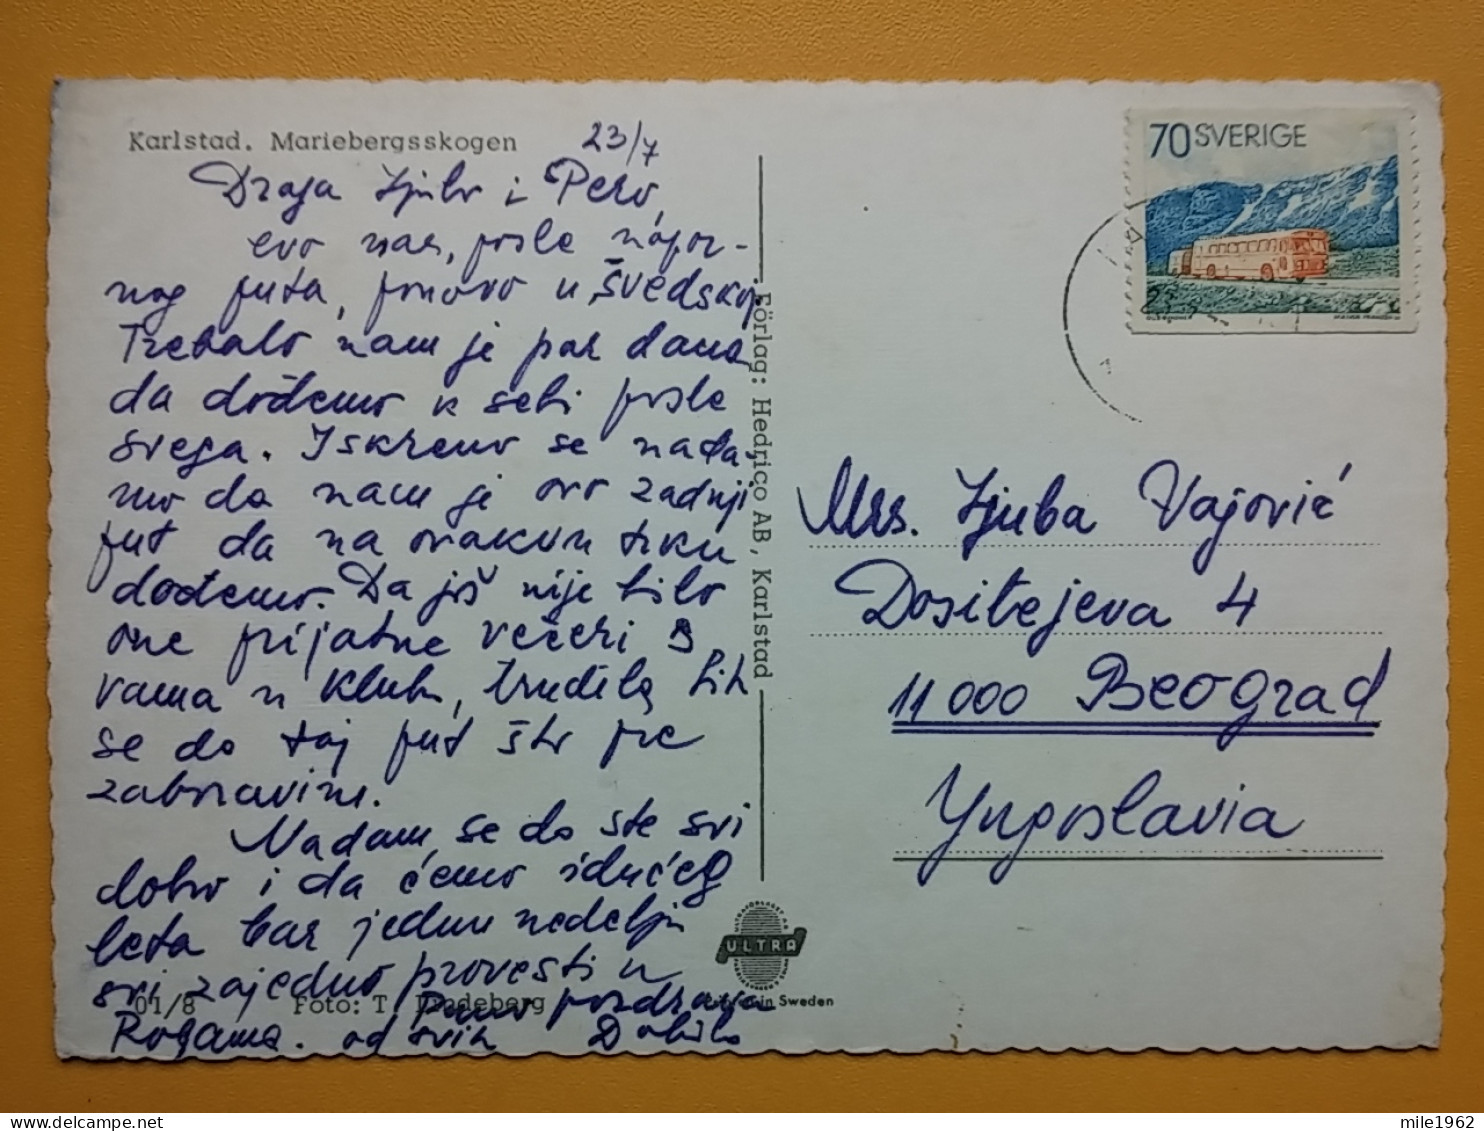 Karlstad. Mariebergsskogen
23/7
Draga Ljubo i Pero,
evo nas, posle napor-
nog puta, ponovo u Švedskoj.
Trebalo nam je par dana
da dođemo k sebi posle
svega. Iskreno se nada-
mo da nam je ovo zadnji
put da na ovakvu trku
dođemo. Da još nije bilo
one prijatne večeri s
vama u klubu, trudila bih
se do taj put što pre
zaboravim.
Nadam se da ste svi
dobro i da ćemo idućeg
leta bar jednu nedelju
svi zajedno provesti u
Rogama. Puno pozdrava
od svih
01/8 Foto: T. Lindeberg
Förlag: Hedrico AB, Karlstad
ULTRA
in Sweden
70 SVERIGE
Mrs. Ljuba Vajović
Dositejeva 4
11 000 Beograd
Yugoslavia
mile1962